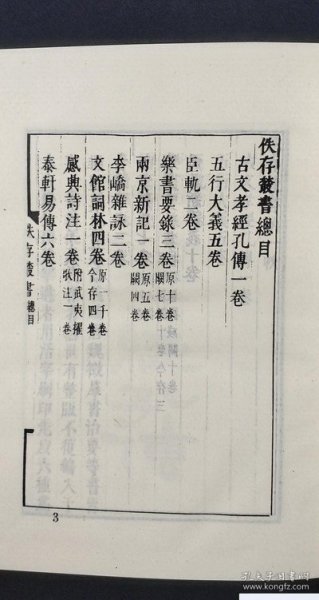 佚存叢書總目
古文孝經孔傳一卷
五行大義五卷
臣軌二卷
樂書要錄三卷 原十卷 闕七卷
兩京新記一卷 原五卷 闕四卷
李嶠雜詠二卷
文館詞林四卷 原一千卷 今存四卷
感興詩注一卷 附武夷櫂歌注一卷
泰軒易傳六卷
佚存叢書 總目
3
孔夫子旧书网
www.kongfz.com